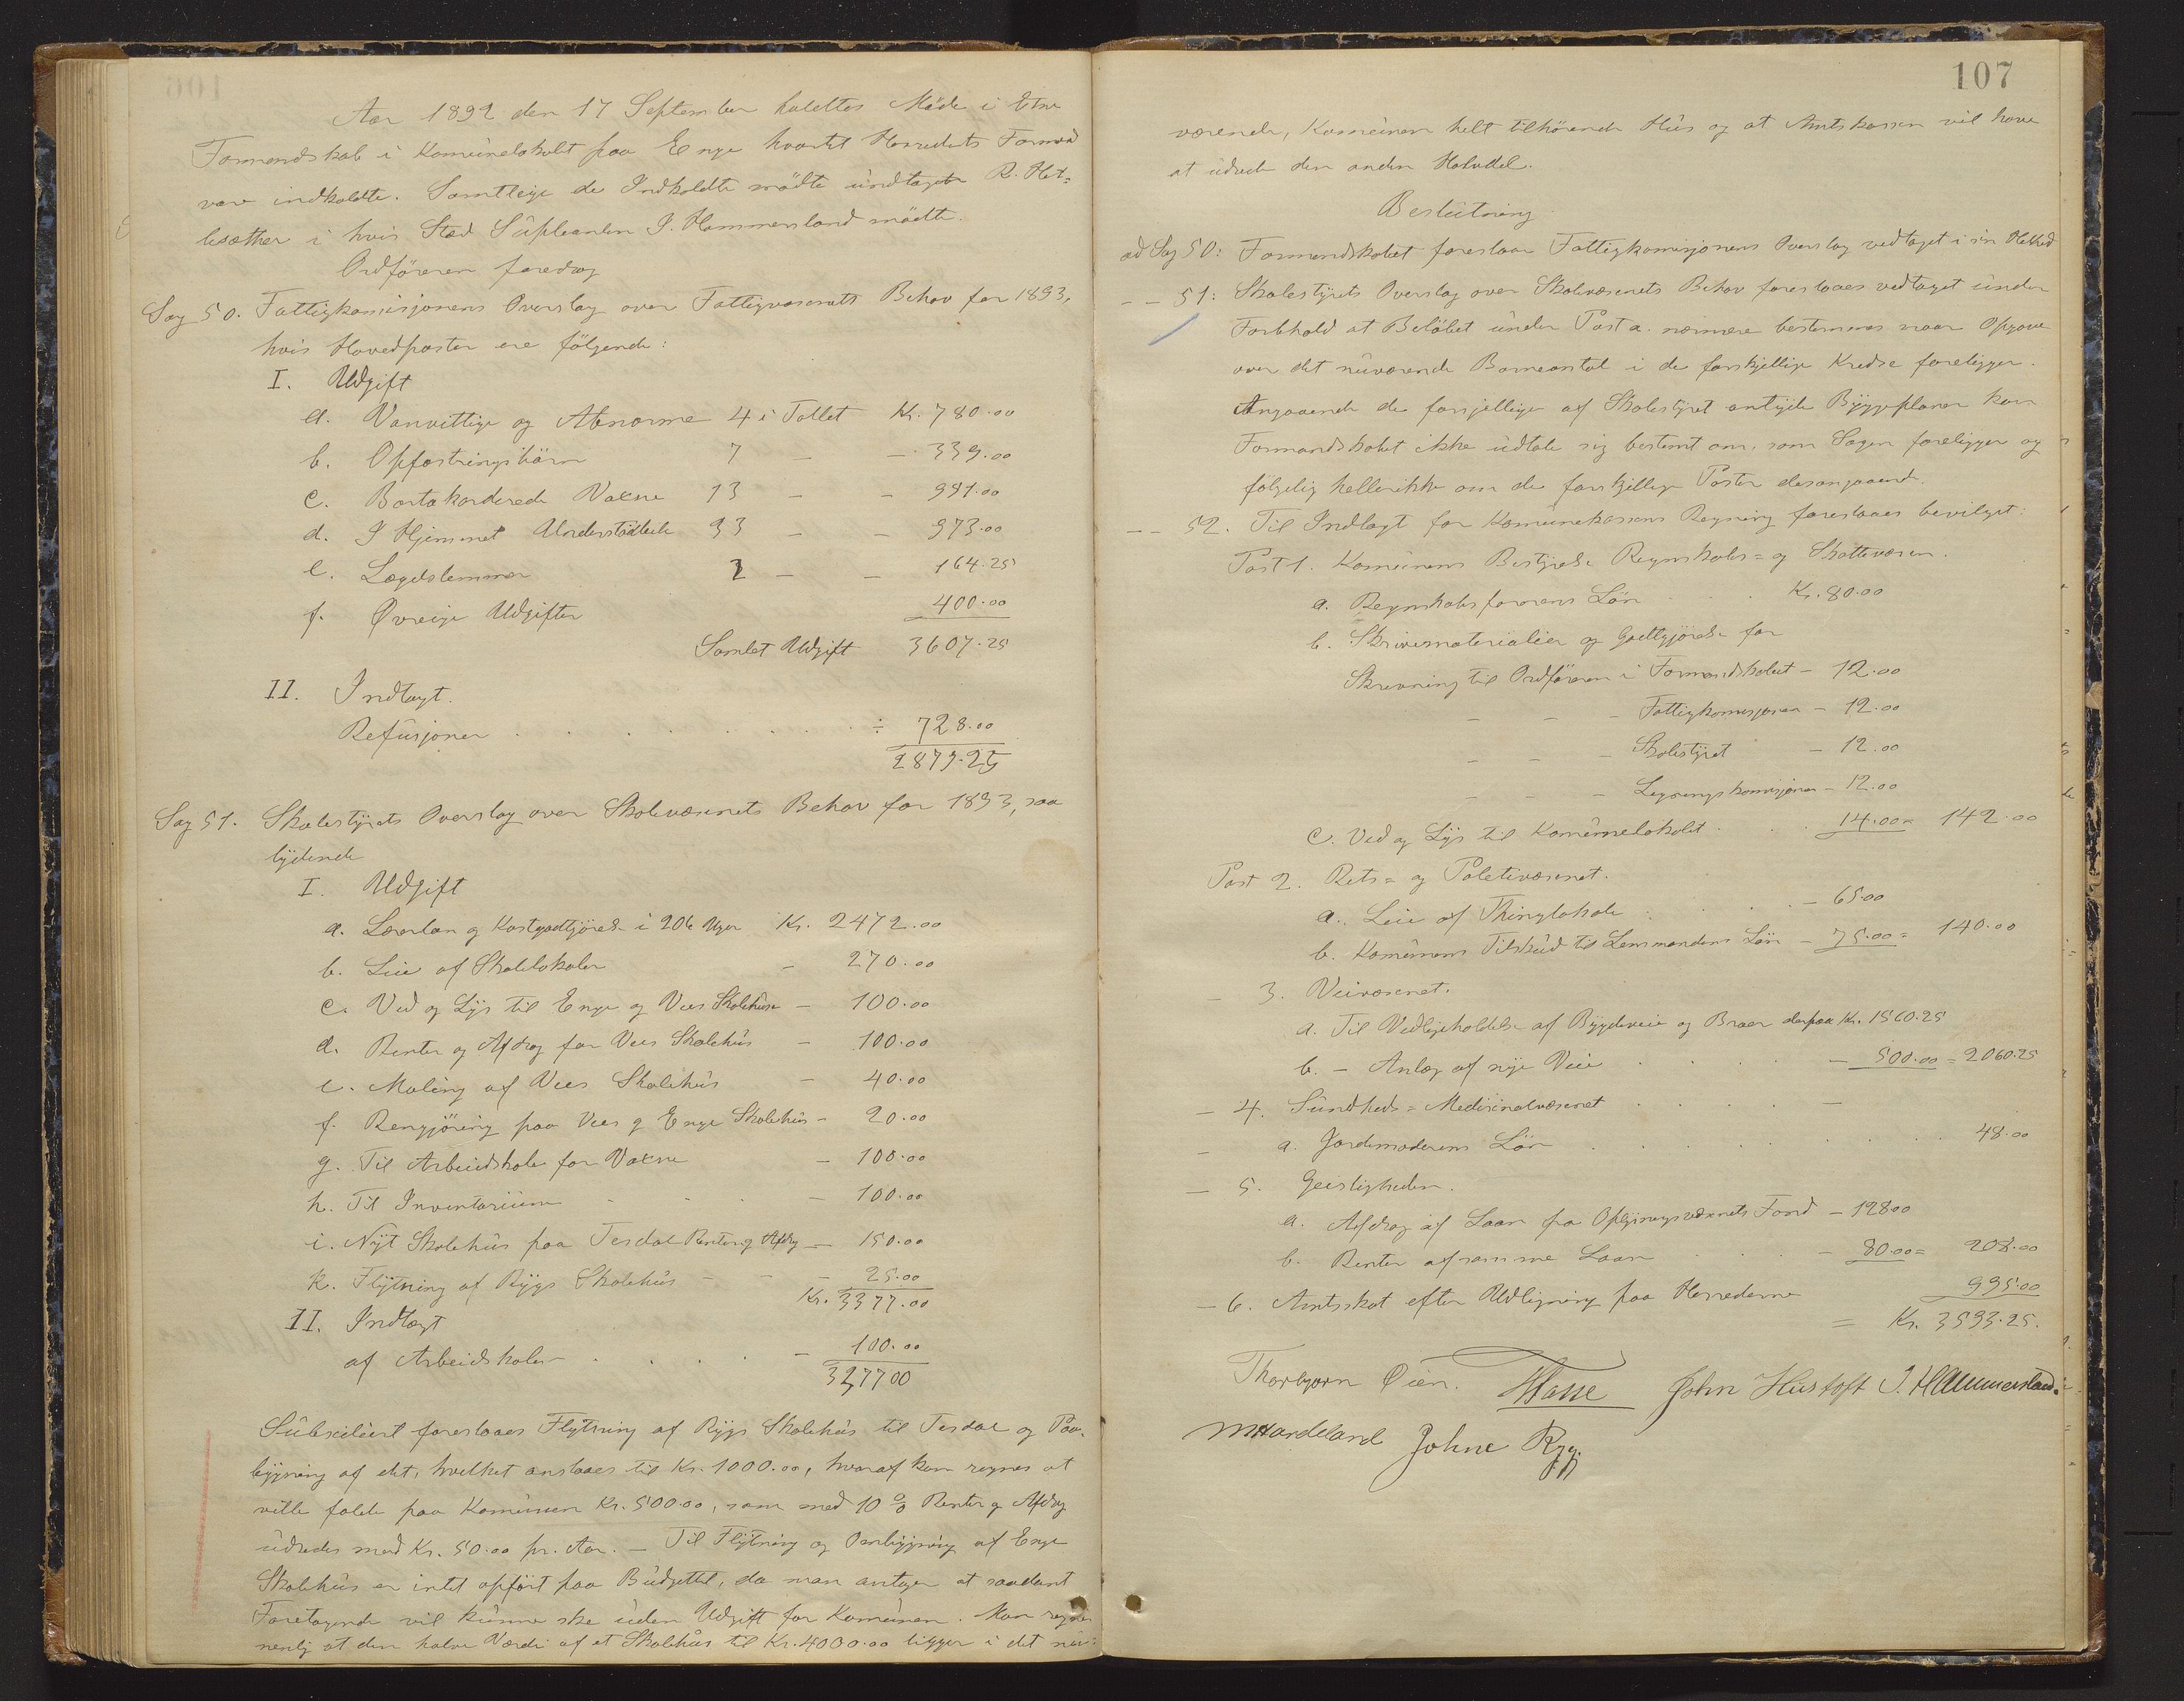 Aar 1892 den 17 September holdttes Möde i Etne
Formandskab i Komünelokalet paa Enge hvortil Herredets Formænd
vare indkaldte. Samtleige de Indkaldte mödte ündtagen R. Het=
lesæther i hvis Sted Süpleanten I. Hammersland mödte.
Ordföreren foredrog
Sag 50. Fattigkomisjonens Overslag over Fattigvæsenets Behov for 1893,
hvis Hovedposter ere fölgende:
I. Udgift
a. Vanvittige og Abnorme 4 i Tallet Kr. 780.00
b. Opfostringsbörn 7 — — 339.00
c. Bortakorderede Voxne 13 — — 951.00
d. I Hjemmet Understöttede 33 — — 973.00
e. Lægdslemmer 2 — — 164.25
f. Øvreige Udgifter 400.00
Samlet Udgift 3607.25
II. Indtægt.
Refüsjoner ÷ 728.00
2879.25
Sag 51. Skolestÿrets Overslag over Skolevæsenets Behov for 1893, saa
lÿdende
I. Udgift
a. Lærerløn og Kostgodtjörelse i 206 Uger Kr. 2472.00
b. Leie af Skolelokaler — 270.00
c. Ved og Lÿs til Enge og Vees Skolehüse — 100.00
d. Renter og Afdrag for Vees Skolehüs — 100.00
e. Maling af Vees Skolehüs — 40.00
f. Rengjöring paa Vees og Enge Skolehüs — 20.00
g. Til Arbeidskole for Voxne — 100.00
h. Til Inventariüm — 100.00
i. Nÿt Skolehüs paa Tesdal Renter og Afdrag — 150.00
k. Flÿtning af Rÿgs Skolehüs — 25.00
Kr. 3377.00
II. Indtægt
af Arbeidskolen — 100.00
327700
Sübsidiært foreslaaes Flÿtning af Rÿgs Skolehüs til Tesdal og Paa-
bÿgning af det, hvilket anslaaes til Kr. 1000.00, hvoraf kan regnes at
ville falde paa Komünen Kr. 500.00, som med 10 % Renter og Afdrag
üdredes med Kr. 50.00 pr. Aar. — Til Flÿtning og Ombÿgning af Enge
Skolehüs er intet opført paa Büdgettet, da man antager at saadant
Foretagende vil künne ske üden Udgift for Komünen. Man regner
nemlig at den halve Værdi af et Skolehüs til Kr. 4000.00 ligger i det nü=
107
værende, Komünen helt tilhörende Hüs og at Amtskassen vil have
at üdrede den anden Halvdel.
Beslütning
ad Sag 50: Formandskabet foreslaar Fattigkomisjonens Overslag vedtaget i sin Helhed
— — 51: Skolestÿrets Overslag over Skolevæsenets Behov foreslaaes vedtaget ünder
Forbehold at Belöbet ünder Post a. nærmere bestemmes naar Opgave
over det nüværende Barneantal i de forskjellige Kredse foreligger.
Angaaende de forsjellige af Skolestÿret antÿde Bÿggeplaner kan
Formandskabet ikke üdtale sig bestemt om, som Sagen foreligger og
fölgelig hellerikke om de forskjellige Poster desangaaende.
— — 52. Til Indtægt for Komünekassens Regning foreslaaes bevilget:
Post 1. Komünens Bestÿrelse Regnskabs= og Skattevæsen.
a. Regnskabsförerens Lön Kr. 80.00
b. Skrivematerialier og Godtgjörelse for
Skrivning til Ordföreren i Formandskabet — 12.00
— — — Fattigkomisjonen — 12.00
— — — Skolestÿret — 12.00
— — — Ligningskomisjonen — 12.00
c. Ved og Lÿs til Komünelokalet 14.00 = 142.00
Post 2. Rets= og Politivæsenet.
a. Leie af Thinglokale — 65.00
b. Komünens Tilsküd til Lensmandens Lön — 75.00 = 140.00
— 3. Veivæsenet.
a. Til Vedligeholdelse af Bÿgdeveie og Broer derpaa Kr. 1560.25
b. — Anlæg af nÿe Veie — 500.00 = 2060.25
— 4. Sündheds= Medicinalvæsenet —
— a. Jordemoderens Lön 48.00
— 5. Geistligheden.
a. Afdrag af Laan fra Oplÿsningsvæsenets Fond — 128.00
b. Renter af samme Laan — 80.00 = 208.00
— 6. Amtsskat efter Udligning paa Herrederne 995.00
= Kr. 3593.25.
Thorbjørn Øien. Hasse John Hustoft I. Hammersland.
M Handeland Johne Rÿg.